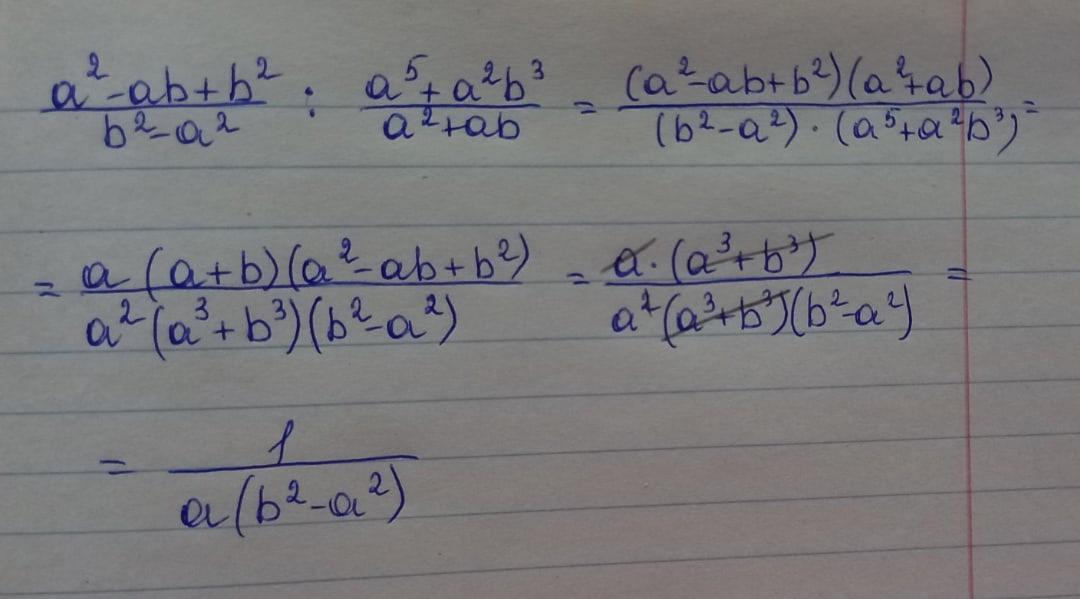 (a²-ab+b²)/(b²-a²) : (a⁵+a²b³)/(a²+ab) = ((a²-ab+b²)(a²+ab))/((b²-a²)·(a⁵+a²b³)) =
= (a(a+b)(a²-ab+b²))/(a²(a³+b³)(b²-a²)) = (a·(a³+b³))/(a²(a³+b³)(b²-a²)) =
= 1/(a(b²-a²))